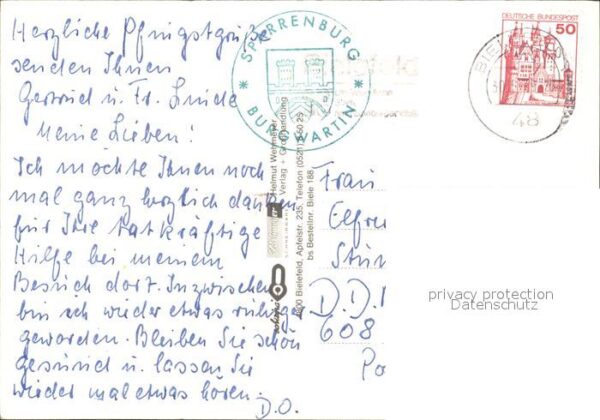 Herzliche Pfingstgrüße
senden Ihnen
Gertrud u. Fr. Linide
Meine Lieben!
Ich möchte Ihnen noch
mal ganz herzlich danken
für Ihre tatkräftige
Hilfe bei meinem
Besuch dort. Inzwischen
bin ich wieder etwas ruhiger
geworden. Bleiben Sie schön
gesund u. lassen Sie
wieder mal etwas hören.
D.O.
* SPARRENBURG *
BURGWARTIN
Helmut Wehmeyer
Verlag + Großhandlung
4800 Bielefeld, Apfelstr. 235, Telefon (0521) 8 60 29
bs Bestellnr. Biele 188
DEUTSCHE BUNDESPOST
50
BIE
48
Frau
Elfrie
Stur
D.D.
608
Po
privacy protection
Datenschutz